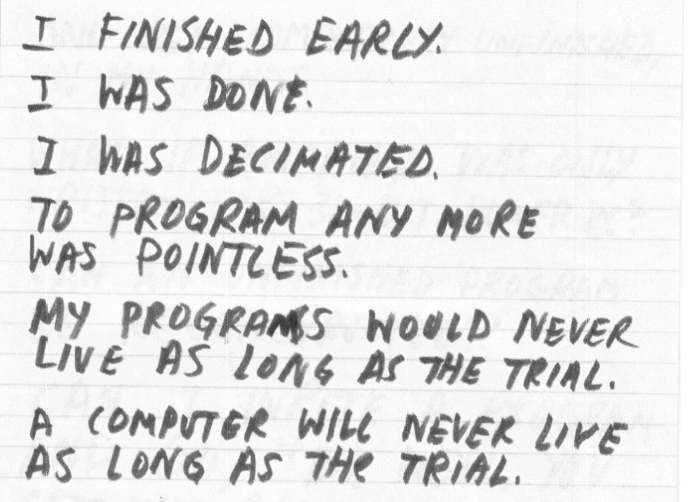 I FINISHED EARLY.
I WAS DONE.
I WAS DECIMATED.
TO PROGRAM ANY MORE
WAS POINTLESS.
MY PROGRAMS WOULD NEVER
LIVE AS LONG AS THE TRIAL.
A COMPUTER WILL NEVER LIVE
AS LONG AS THE TRIAL.